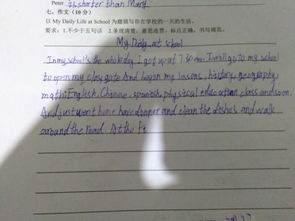 Peter is shorter than Mary.
七、作文(10分)
以 My Daily Life at School 为题描写你在学校的一天的生活。
要求：1.不少于五句话 2.条理清楚，意思连贯，标点正确，书写规范。
My Daily at school
In my school's the I get up at 7 I will go to my school
to open my class And began my lessons, history, geography
math, English, Chinese, spanish, physical education class and soon.
And just went home have danper and clean the dishes and walk
around the road. At the